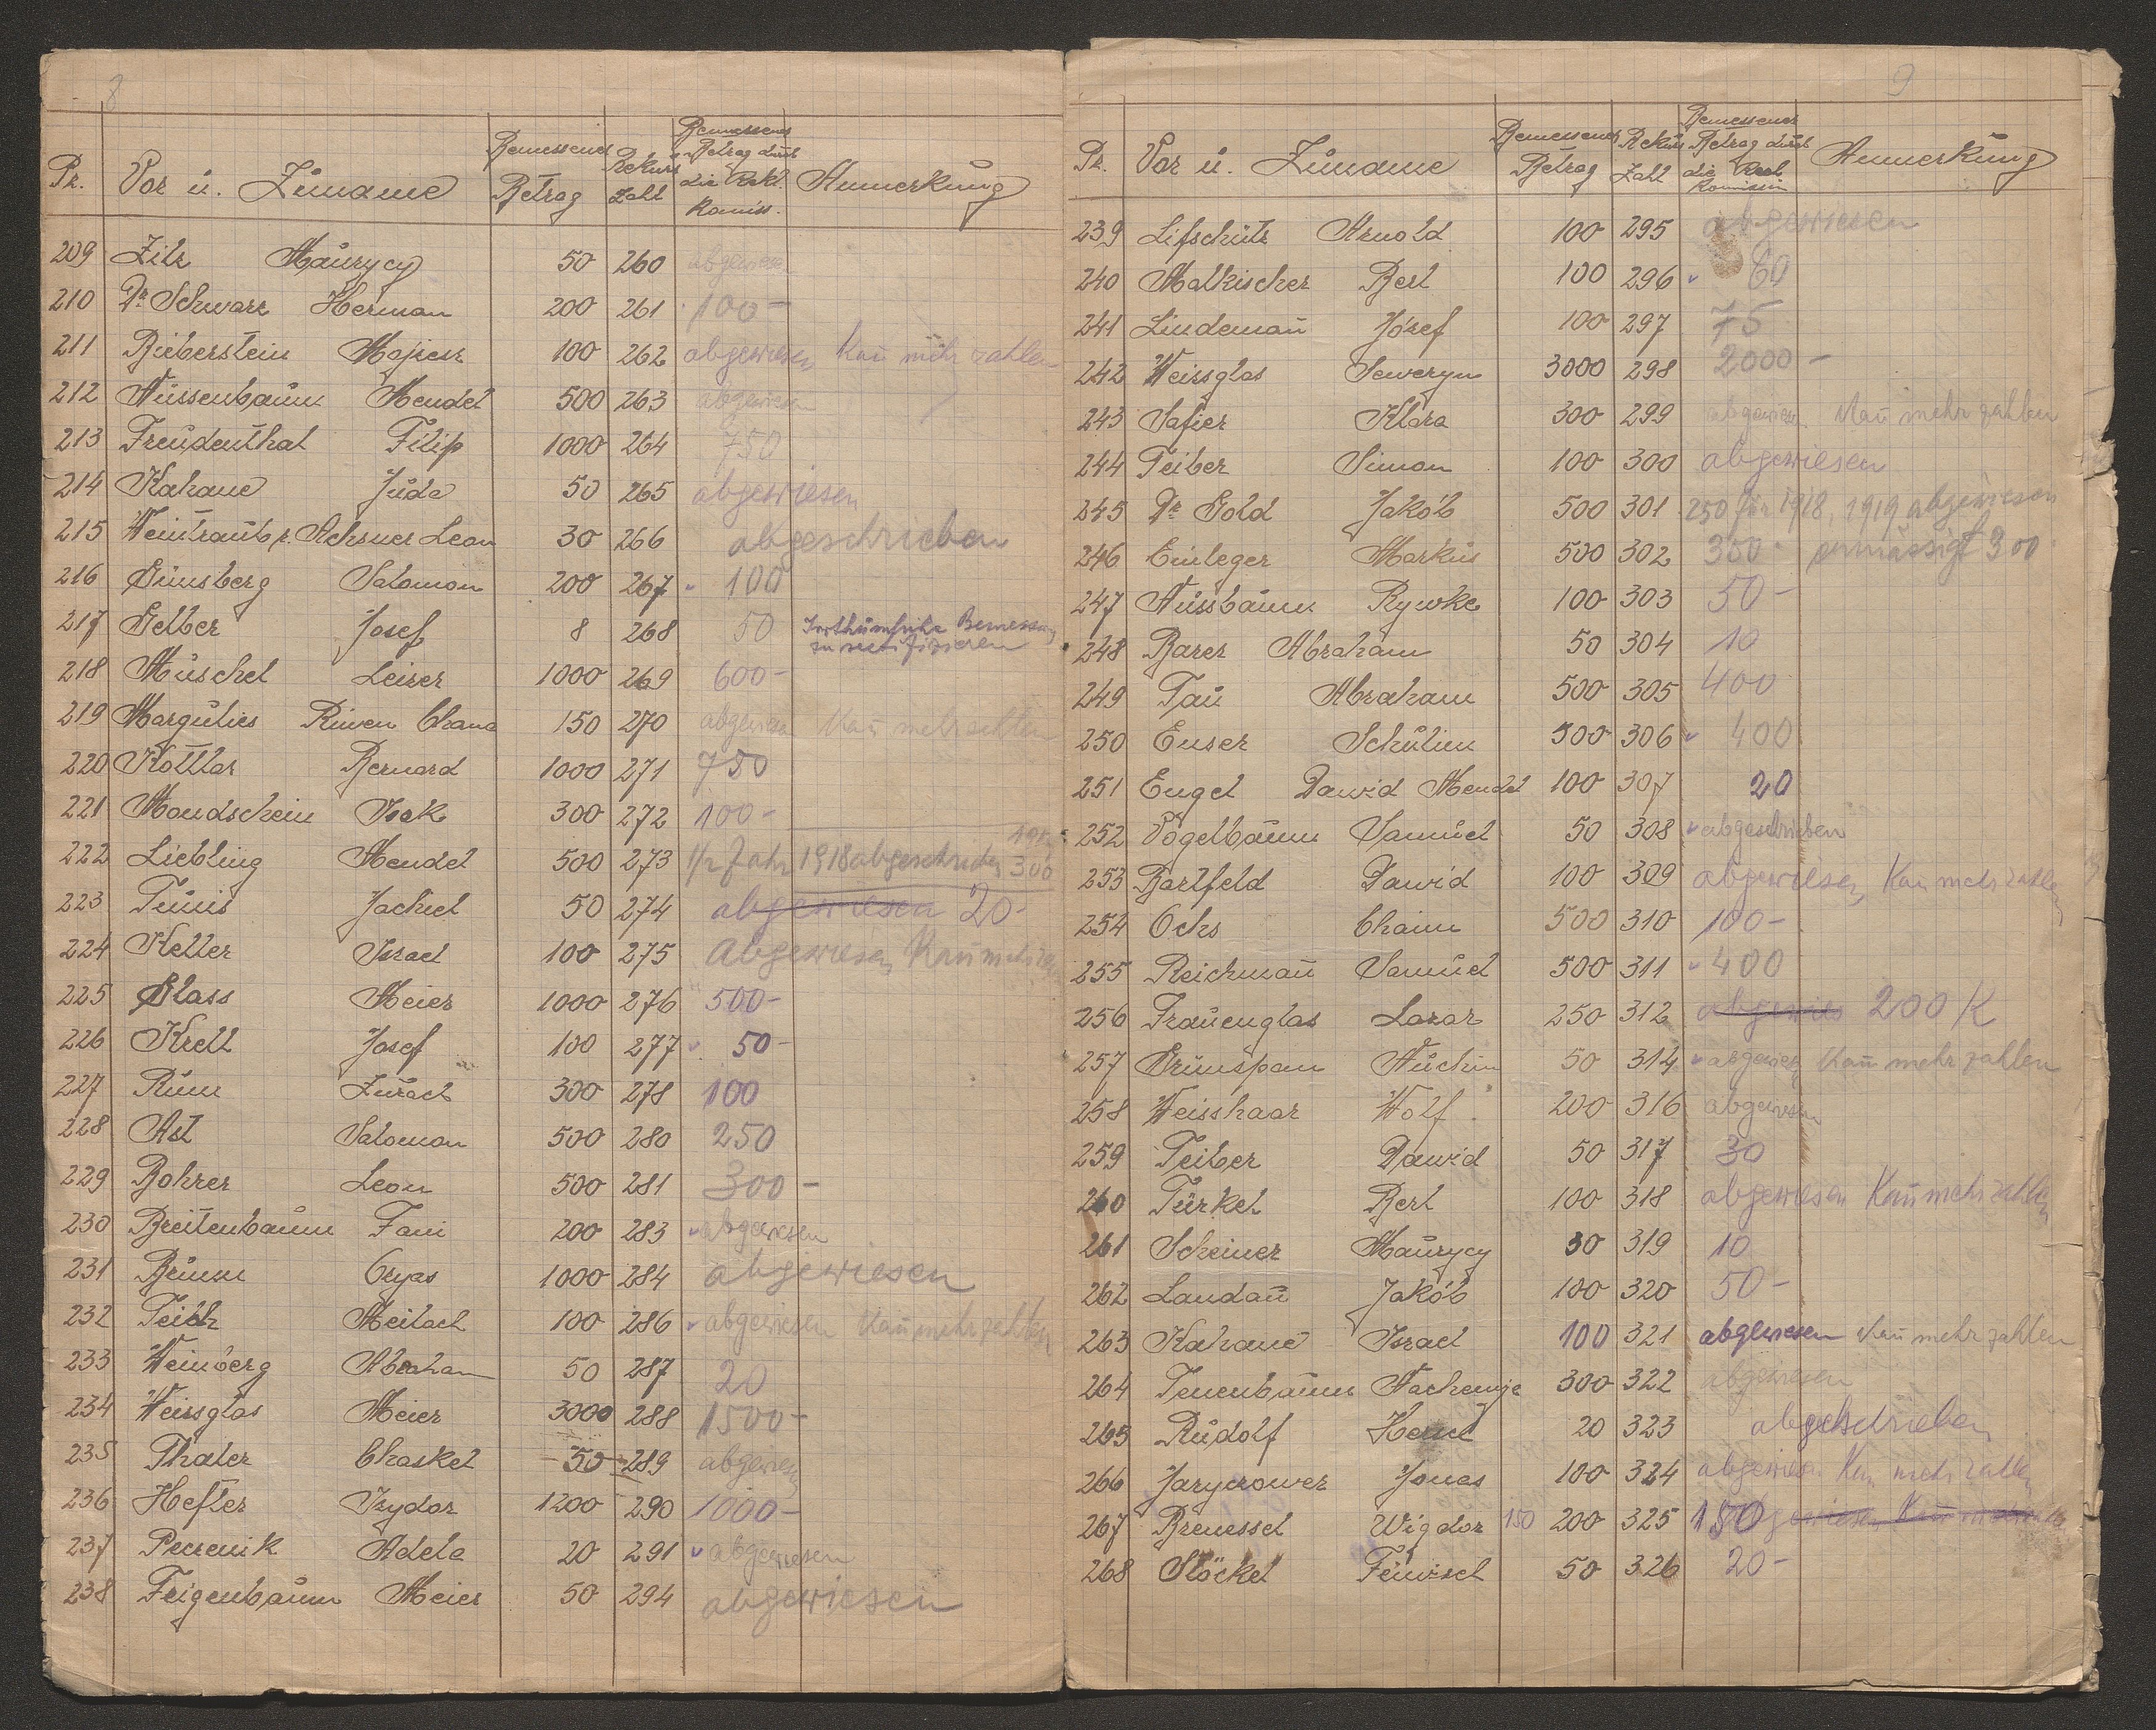 8
Pr. Vor u. Zuname Bemessener Betrag Rekurs Zahl Bemessener Betrag durch die Rekl. Komiss. Anmerkung
209 Zilz Maurycy 50 260 abgewiesen
210 Dr Schwarz Herman 200 261 100-
211 Bieberstein Majiesz 100 262 abgewiesen Kañ mehr zahlen
212 Nussenbaum Mendel 500 263 abgewiesen
213 Freudenthal Filip 1000 264 750
214 Kahane Juda 50 265 abgewiesen
215 Weintraub r. Achsner Leon 30 266 abgeschrieben
216 Günsberg Salomon 200 267 100
217 Gelber Josef 8 268 50 Irrthümliche Bemessung zu rectifizieren
218 Muschel Leizer 1000 269 600-
219 Margulies Riwen Chana 150 270 abgewiesen Kañ mehr zahlen
220 Kottlar Bernard 1000 271 750
221 Mondschein Isak 300 272 100-
222 Liebling Mendel 500 273 1/2 Jahr 1918 abgeschrieben 300
223 Tunis Jachiel 50 274 abgewiesen 20-
224 Keller Israel 100 275 abgewiesen Kañ mehr
225 Glass Meier 1000 276 500-
226 Krell Josef 100 277 50-
227 Rum Zurach 300 278 100
228 Ast Salomon 500 280 250
229 Bohrer Leon 500 281 300-
230 Breitenbaum Fani 200 283 abgewiesen
231 Brumm Oryas 1000 284 abgewiesen
232 Teich Meilach 100 286 abgewiesen Kañ mehr zahlen
233 Weinberg Abraham 50 287 20
234 Weissglas Meier 3000 288 1500-
235 Thaler Chaskel 50 289 abgewiesen
236 Hefter Izydor 1200 290 1000-
237 Peczenik Adela 20 291 abgewiesen
238 Feigenbaum Meier 50 294 abgewiesen
9
Pr. Vor u. Zuname Bemessener Betrag Rekurs Zahl Bemessener Betrag durch die Rekl. Komission Anmerkung
239 Lifschütz Arnold 100 295 abgewiesen
240 Malkischer Berl 100 296 60
241 Lindemañ Józef 100 297 75
242 Weissglas Seweryn 3000 298 2000-
243 Safier Klara 300 299 abgewiesen Kañ mehr zahlen
244 Teiber Simon 100 300 abgewiesen
245 Dr Gold Jakób 500 301 250 für 1918, 1919 abgewiesen
246 Einleger Markus 500 302 350 ermässigt 300
247 Nussbaum Rywke 100 303 50-
248 Barer Abraham 50 304 10
249 Tau Abraham 500 305 400
250 Enser Schulim 500 306 400
251 Engel Dawid Mendel 100 307 20
252 Vogelbaum Samuel 50 308 abgeschrieben
253 Bartfeld Dawid 100 309 abgewiesen Kañ mehr zahlen
254 Ochs Chaim 500 310 100-
255 Reichmañ Samuel 500 311 400
256 Frauenglas Lazar 250 312 abgewies 200 K
257 Grünspan Nuchim 50 314 abgewies Kañ mehr zahlen
258 Weisshaar Wolf 200 316 abgewiesen
259 Teiber Dawid 50 317 30
260 Türkel Berl 100 318 abgewiesen Kañ mehr zahlen
261 Scheiner Maurycy 30 319 10
262 Landau Jakób 100 320 50-
263 Kahane Israel 100 321 abgewiesen Kañ mehr zahlen
264 Tenenbaum Nachemje 300 322 abgewiesen
265 Rudolf Hersch 20 323 abgeschrieben
266 Jaryczower Jonas 100 324 abgewiesen Kañ mehr zahlen
267 Brenessel Wigdor 150 200 325 150
268 Stöckel Feiwisch 50 326 20-